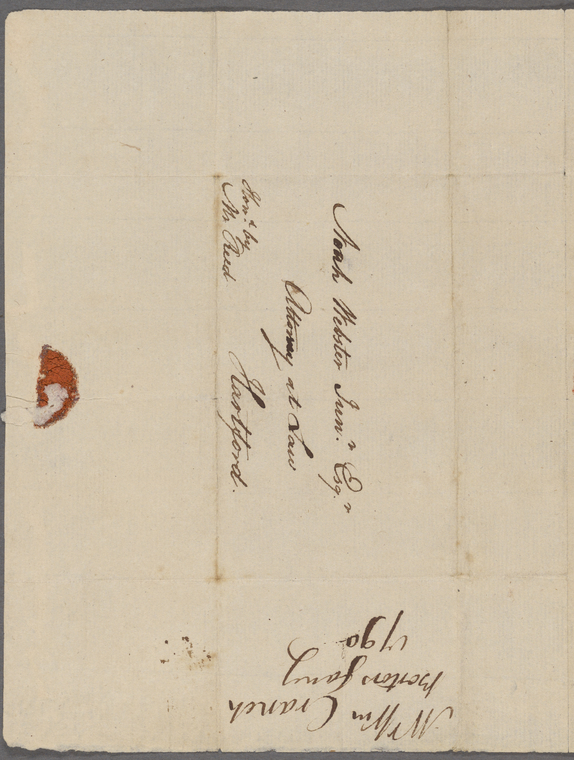 Noah Webster Junr. Esqr
Attorney at Law
Hartford.
Hond. by
Mr Reed
Mr Wm Cranch
Boston Jany
1790